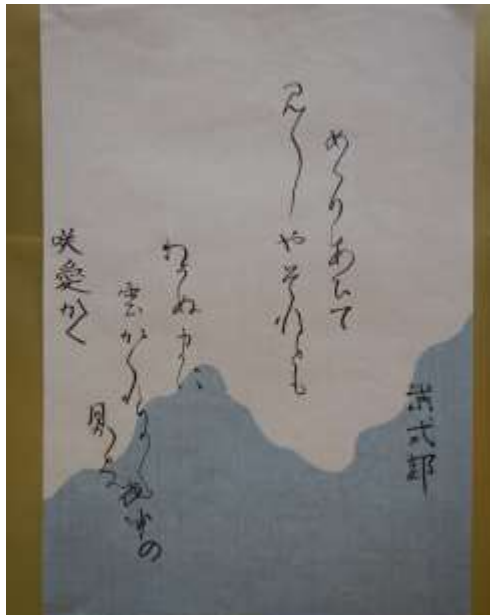 紫式部
めくりあひて
見しやそれとも
わかぬまに
雲かくれにし夜半の
月かな
咲愛かく